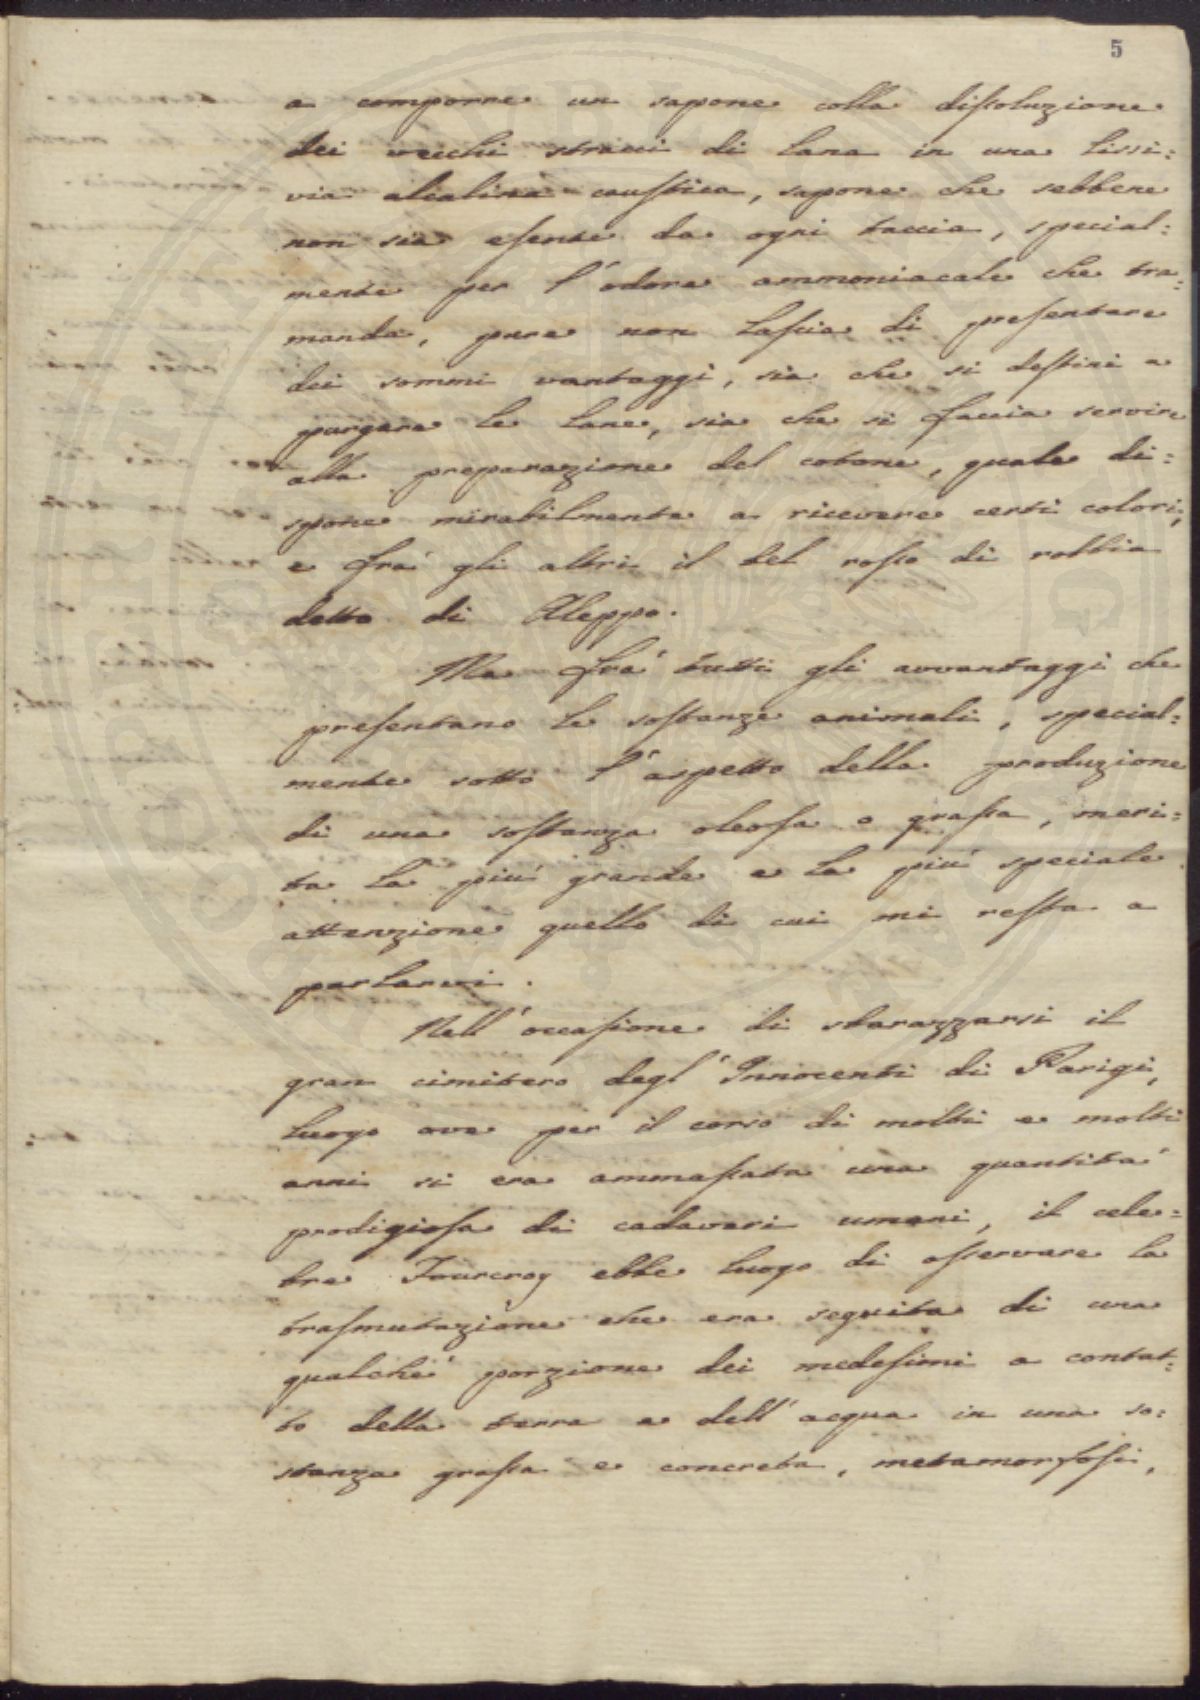 5
a comporre un sapone colla dissoluzione
dei vecchi stracci di lana in una lissi=
via alcalina caustica, sapone che sebbene
non sia esente da ogni taccia, special=
mente per l'odore ammoniacale che tra=
manda, pure non lascia di presentare
dei sommi vantaggi, sia che si destini a
purgare le lane, sia che si faccia servire
alla preparazione del cotone, quale di=
spone mirabilmente a ricevere certi colori,
e frà gli altri il del rosso di robbia
detto di Aleppo.
Ma frà tutti gli avvantaggi che
presentano le sostanze animali, special=
mente sotto l'aspetto della produzione
di una sostanza oleosa o grassa, meri=
ta la più grande e la più speciale
attenzione quello di cui mi resta a
parlarvi.
Nell'occasione di sbarazzarsi il
gran cimitero degl'Innocenti di Parigi,
luogo ove per il corso di molti e molti
anni si era ammassata una quantità
prodigiosa di cadaveri umani, il cele=
bre Fourcroy ebbe luogo di osservare la
trasmutazione che era seguita di una
qualche porzione dei medesimi a contat=
to della terra e dell'acqua in una so=
stanza grassa e concreta, metamorfosi,